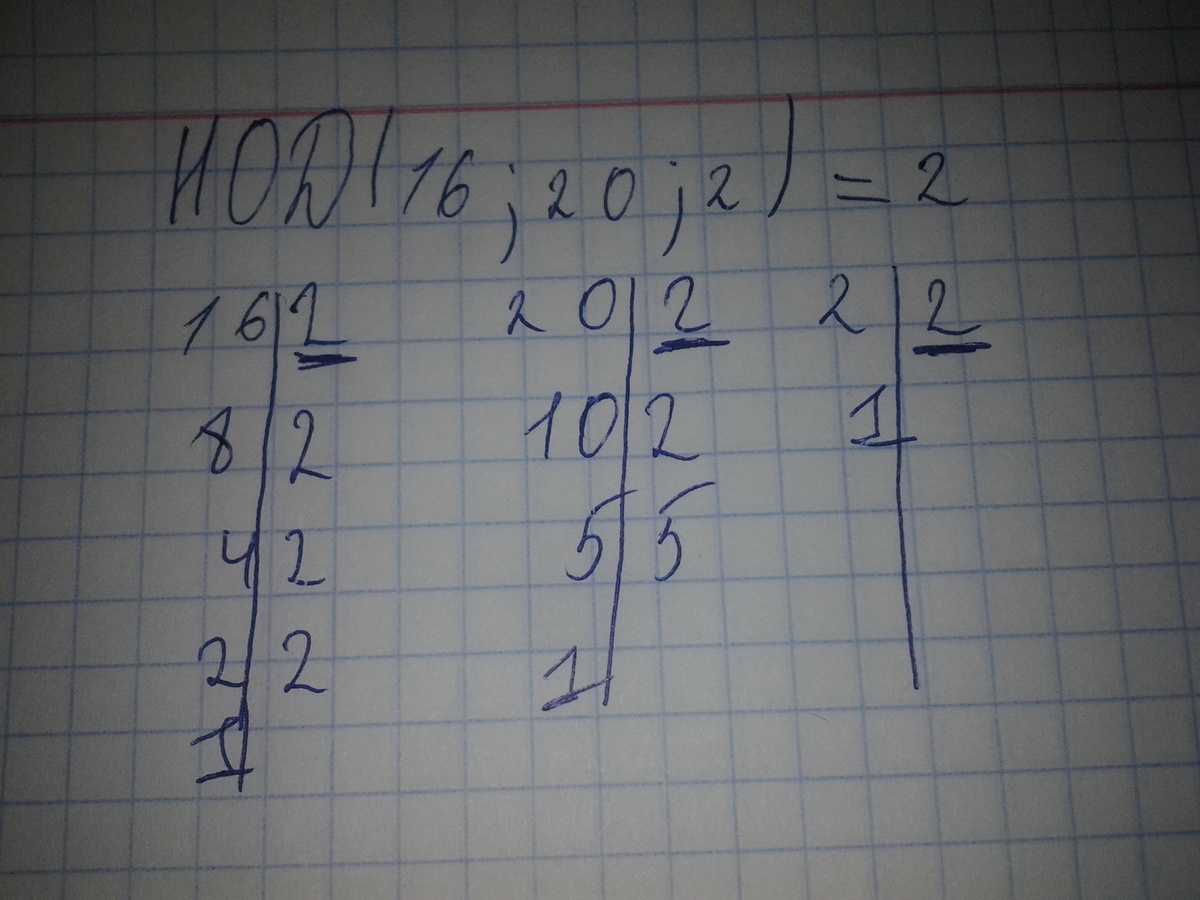 НОД(16;20;2)=2
16|2 20|2 2|2
8|2 10|2 1|
4|2 5|5
2|2 1|
1|